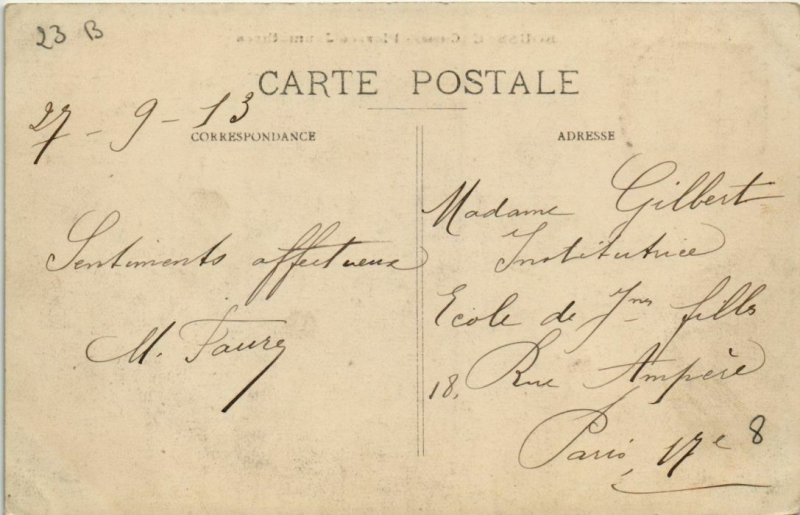 23 B
CARTE POSTALE
27 - 9 - 13
CORRESPONDANCE
Sentiments affectueux
M. Faure
ADRESSE
Madame Gilbert
Institutrice
Ecole de Jnes filles
18, Rue Ampère
Paris, 17e
8